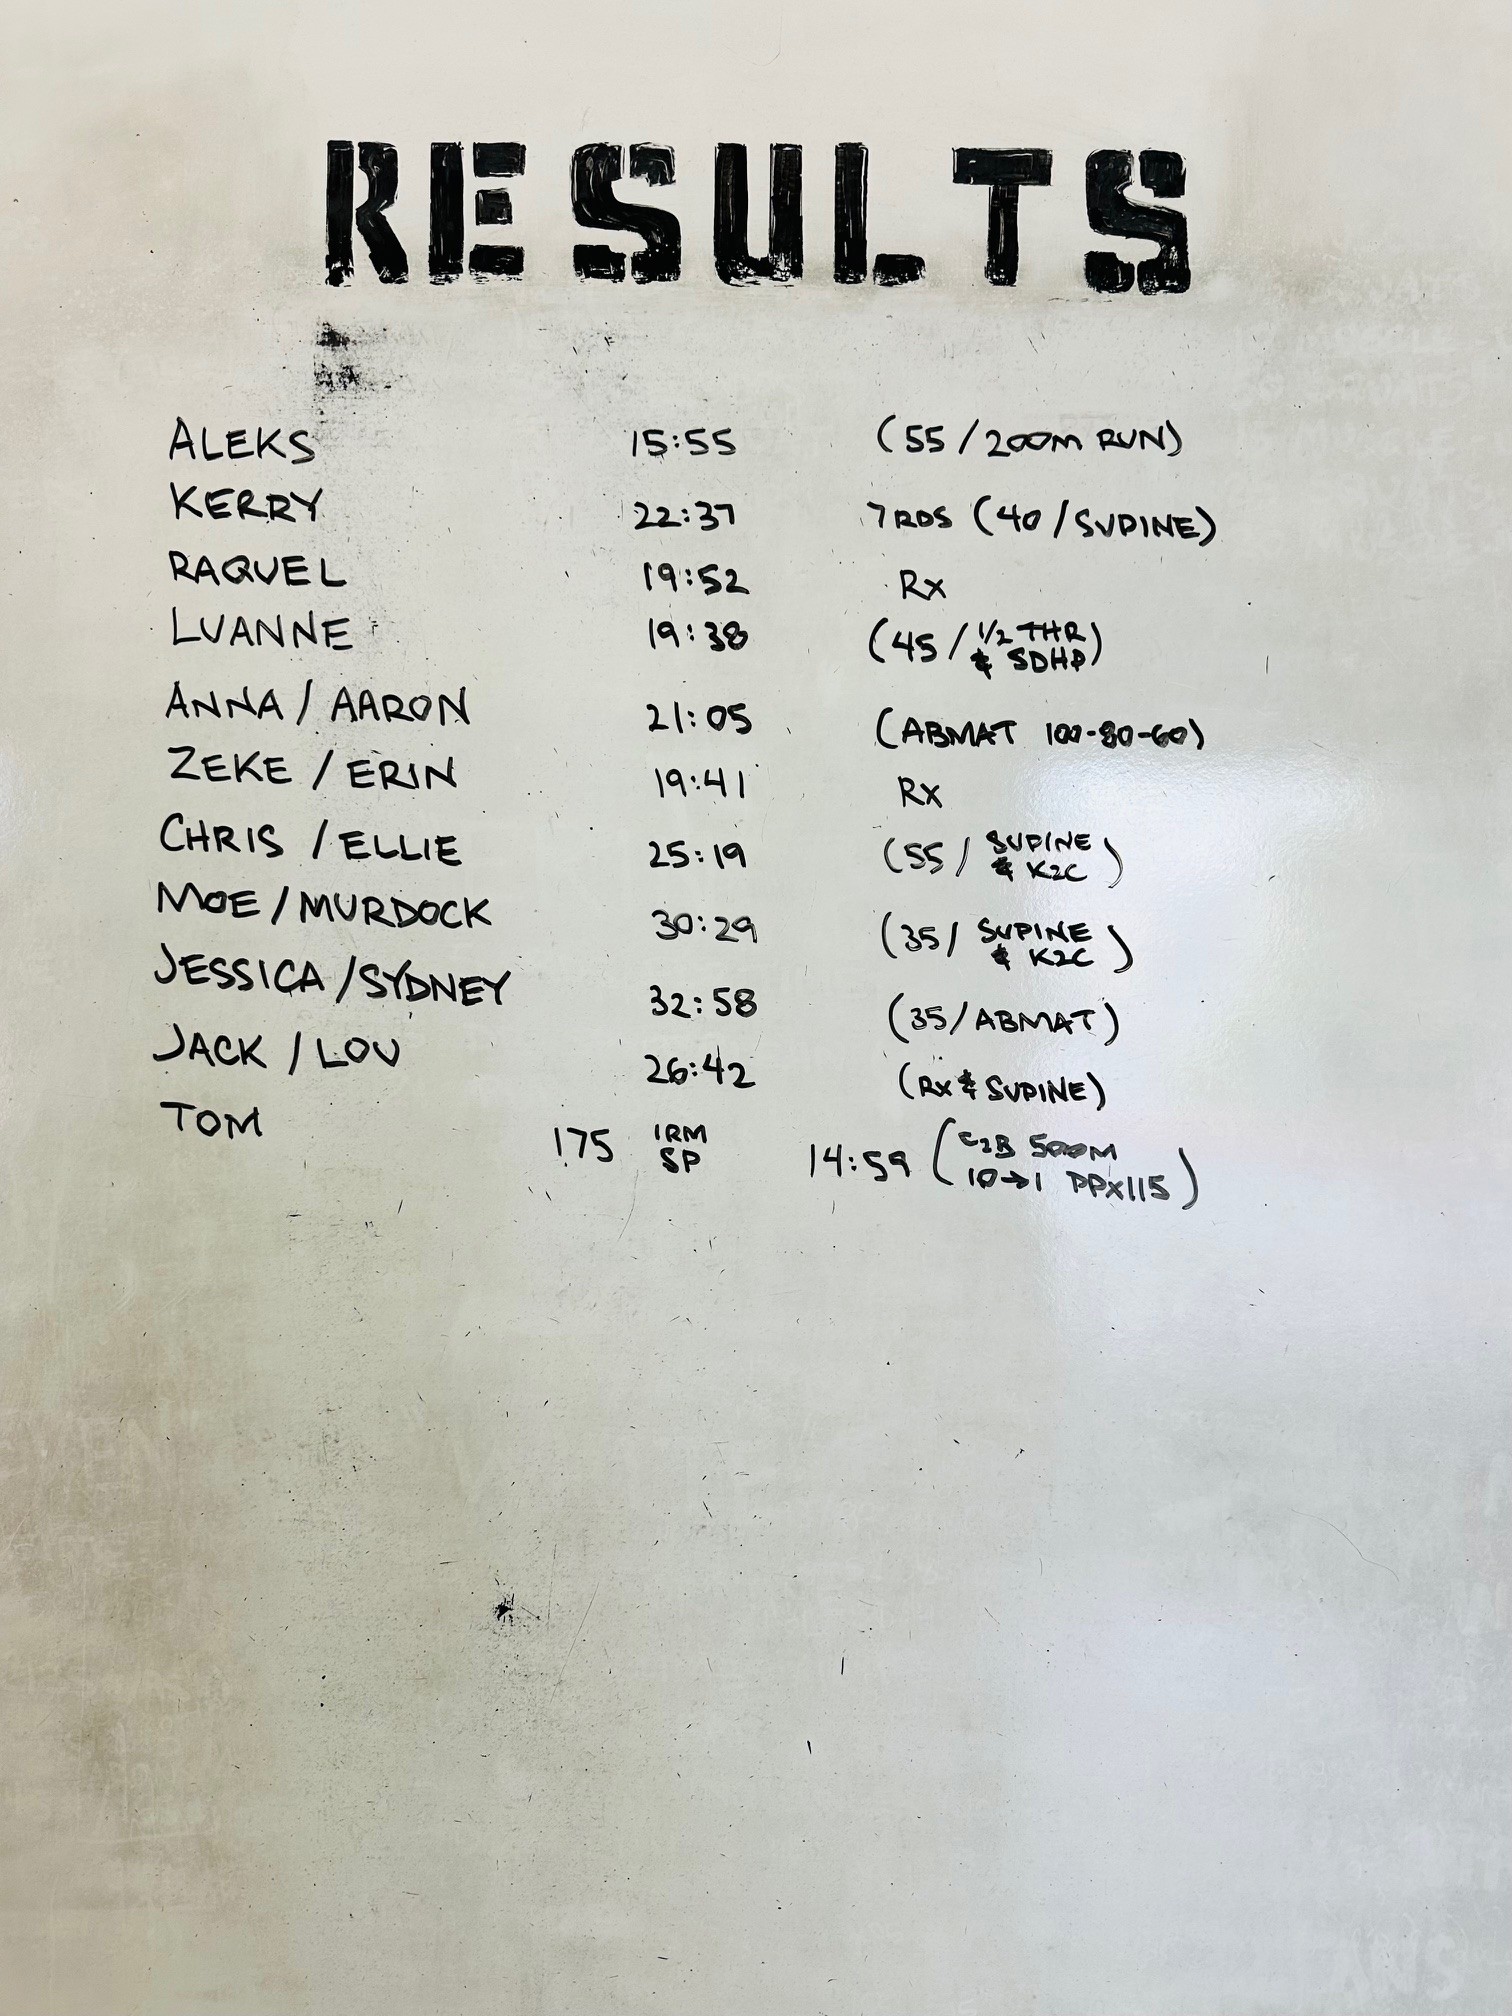 RESULTS
ALEKS 15:55 (55/200M RUN)
KERRY 22:37 7RDS (40/SUPINE)
RAQUEL 19:52 Rx
LUANNE 19:38 (45/ 1/2 THR & SDHP)
ANNA / AARON 21:05 (ABMAT 100-80-60)
ZEKE / ERIN 19:41 Rx
CHRIS / ELLIE 25:19 (55/ SUPINE & K2C)
MOE / MURDOCK 30:29 (35/ SUPINE & K2C)
JESSICA / SYDNEY 32:58 (35/ABMAT)
JACK / LOU 26:42 (Rx & SUPINE)
TOM 175 1RM SP 14:59 (C2B 500M 10→1 PPx115)